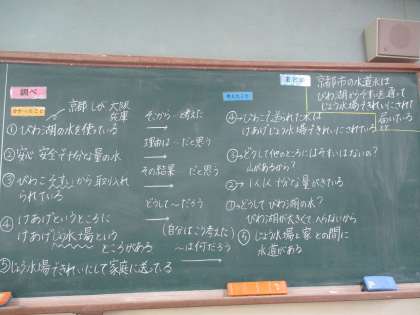 調べ
分かったこと
京都 しが 大阪
兵庫
①びわ湖の水を使っている
②安心 安全 十分な量の水
③びわこそすいから取り入れ
られている
④けあげというところに
けあげじょう水場という
ところがある
⑤じょう水場できれいにして家庭に送っている
そこから…考えた
理由は…だと思う
その結果…だと思う
どうして〜だろう
(自分はこう考えた)
〜は何だろう
考えたこと
④→びわこで送られた水は
けあげじょう水場できれいにされている
③→どうして他のところにはそすいはないの?
山があるから?
②→1人1人十分な量ができている
①→どうしてびわ湖の水?
びわ湖が大きくて、へらないから
⑤じょう水場と家との間に
水道がある
京都市の水道水は
びわ湖からそすいを通って
じょう水場できれいにされて
届いている